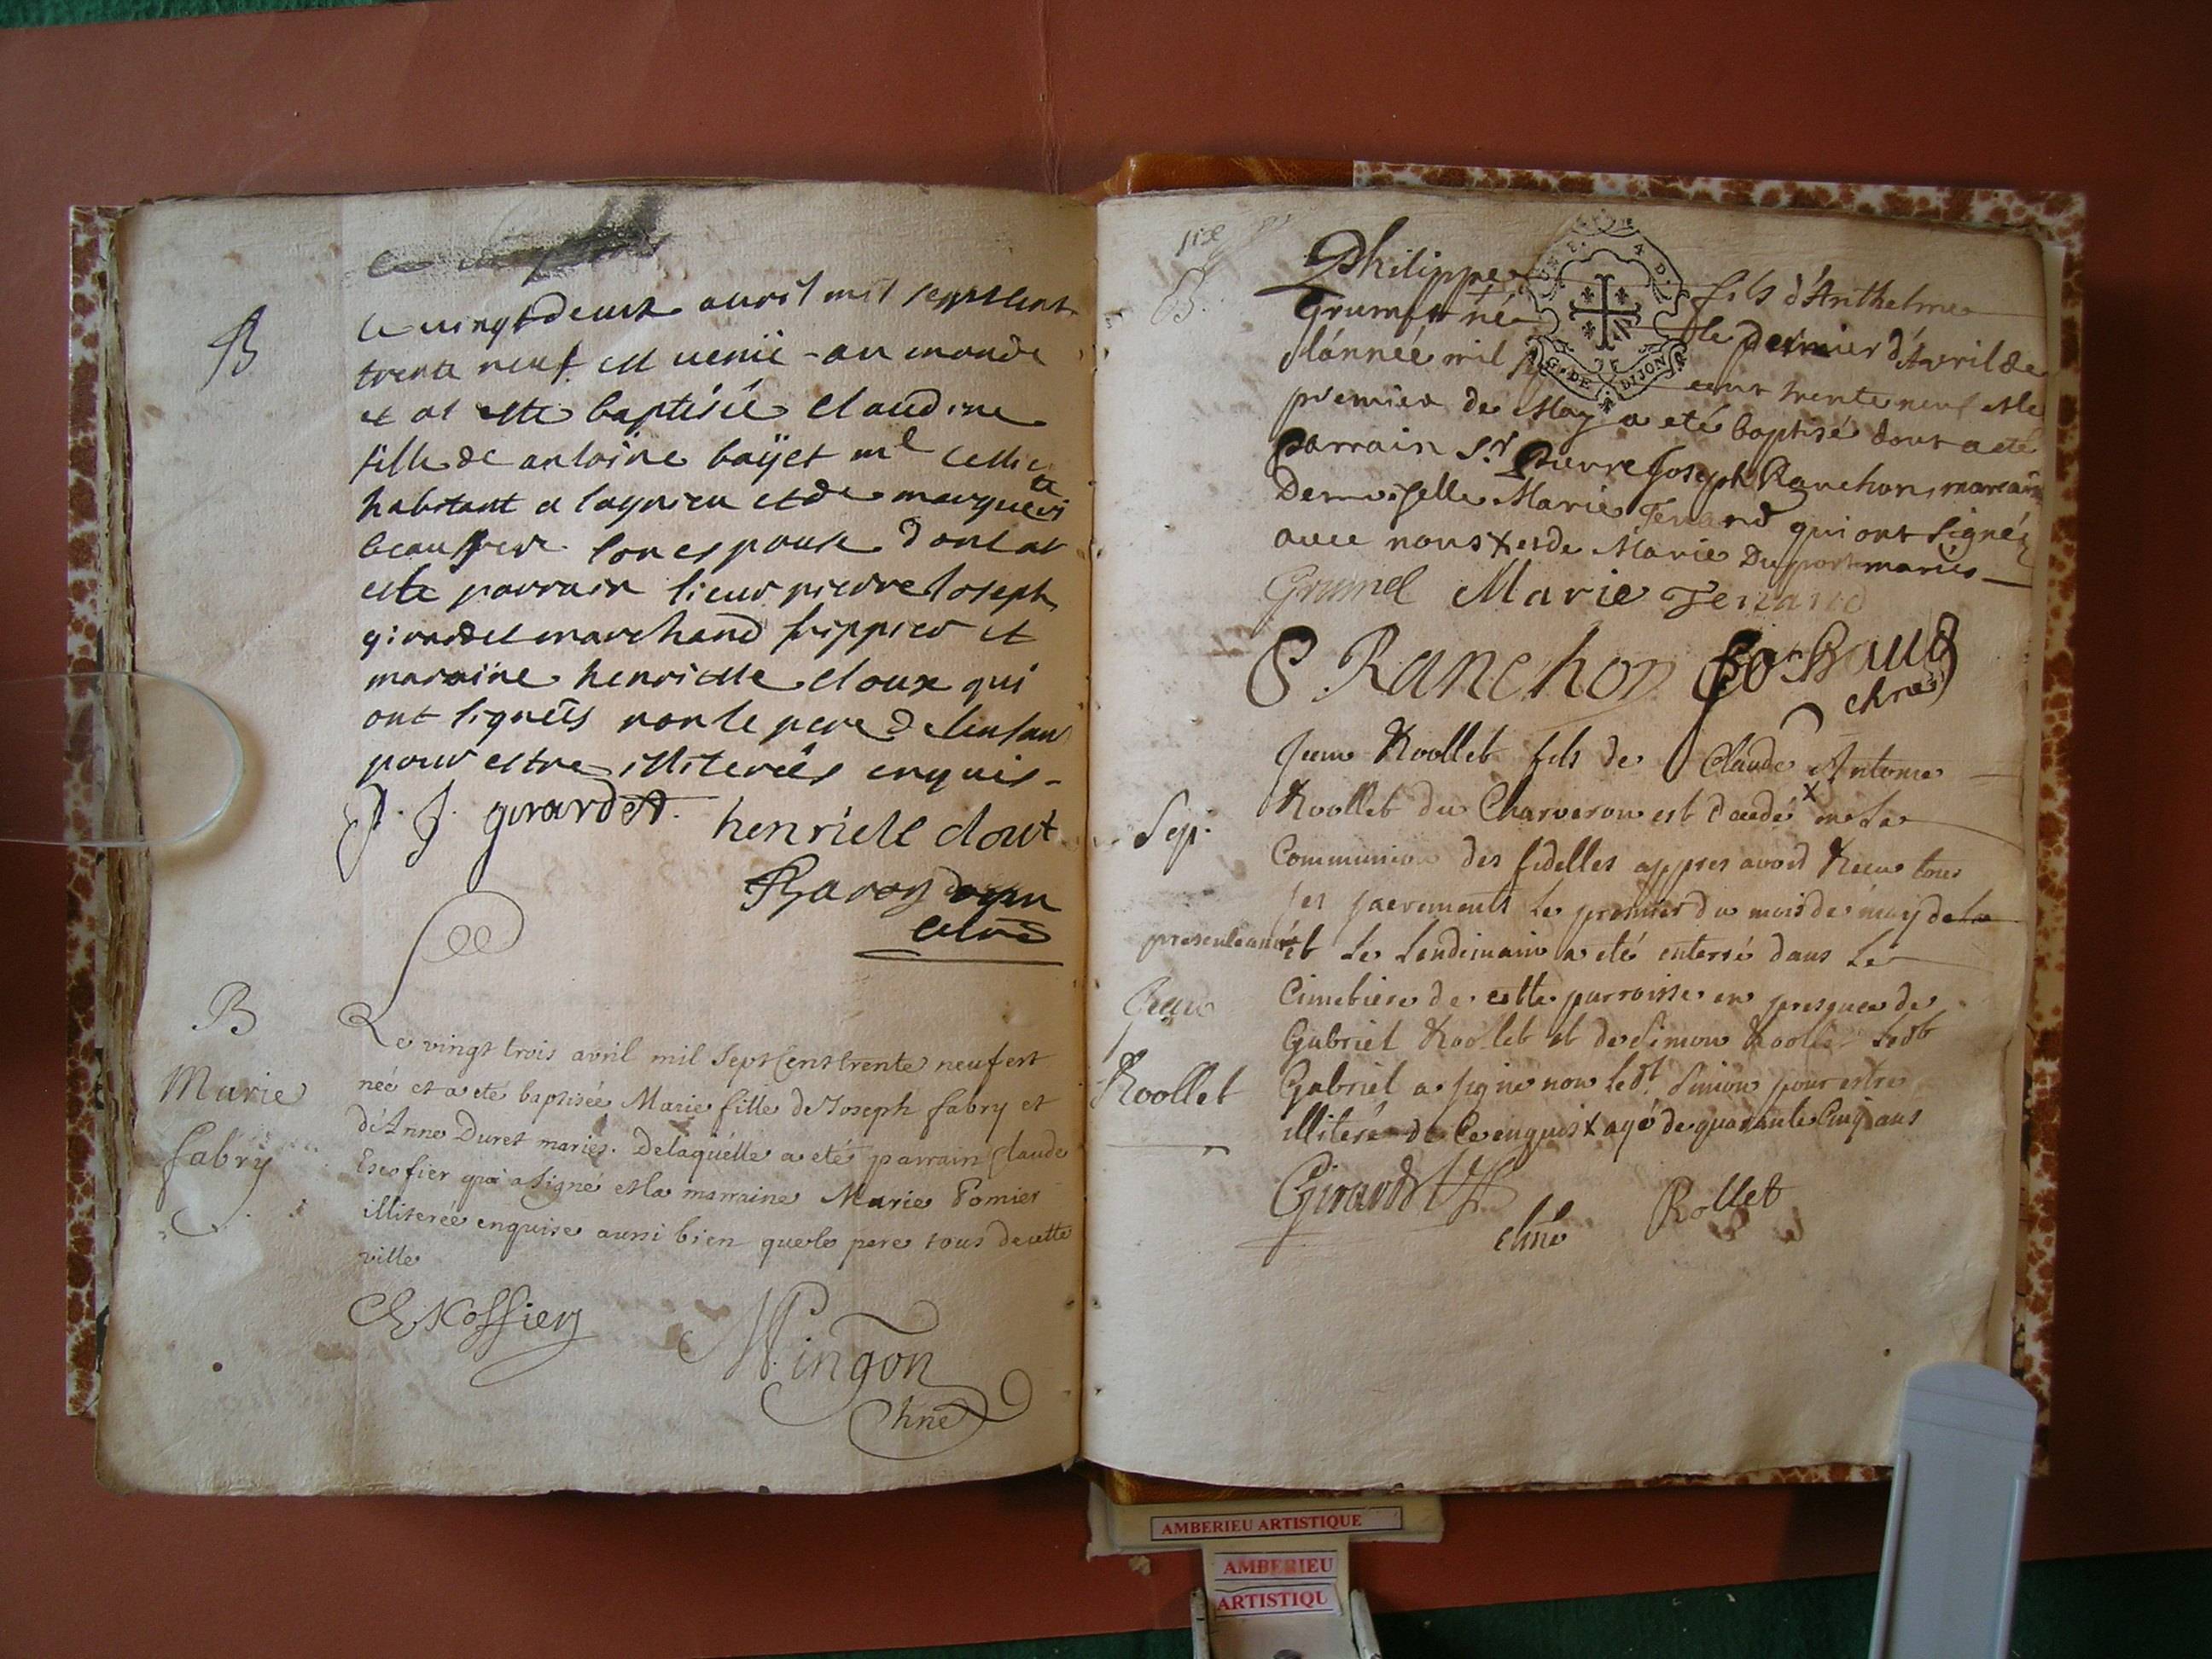 B
le vingt deux avril mil sept cent
trente neuf est venue au monde
et at este baptisée Claudine
fille de antoine baÿet md
habitant a lagnieu et de marguerite
son espouse dont at
este parrain sieur pierre Joseph
girardet marchand frippier et
maraine henriette cloux qui
ont signéés non le pere de lenfant
pour estre illiterées enquis
P. J. girardet. henriete clout
B
Marie
fabry
Le vingt trois avril mil Sept Cent trente neuf est
née et a eté baptisée Marie fille de Joseph fabry et
d'Anne Duret mariés. De laquelle a eté parrain Claude
Escofier qui a signé et la marraine Marie Pomier
illiterée enquise aussi bien que le pere tous de cette
ville
Mingon
chne
six
B.
Philippe fils d'Anthelme
Grumet né le dernier d'Avril de
l'année mil sept cent trente neuf et le
premier de May a eté baptisé dont a eté
parrain Sr. Pierre Joseph Ranchon, maraine
Demoiselle Marie Tenand qui ont signé
avec nous x et de Marie Duport mariés
Grumel Marie Tenand
P Ranchon
chne
Jean Roollet fils de Claude Antoine
Sep.
Roollet du Charveron est decedé x en la
Communion des fidelles appres avoir Receu tous
ses sacrements le premier du mois de may de la
presente année et le lendimain a eté enterré dans le
Jean
Cimetiere de cette parroisse en presence de
Gabriel Roollet et de Simon Roollet ledt
Roollet
Gabriel a signe non ledt Simon pour estre
illiteré de ce enquis x agé de quarante Cinq ans
Girardet
chne
Rollet
G. DE DIJON
AMBERIEU ARTISTIQUE
AMBERIEU
ARTISTIQU